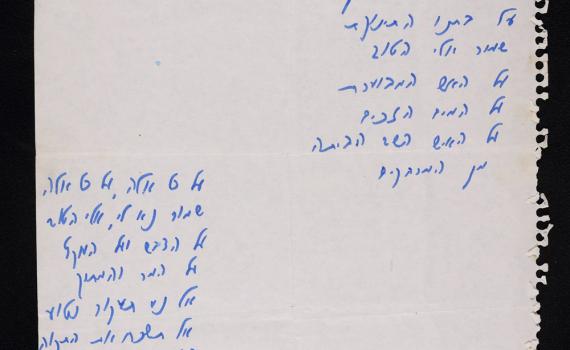 על בתנו התינוקת
שמור אלי הטוב
על האש המבוערת
על המים הזכים
על האיש השב הביתה
מן המרחקים
על כל אלה, על כל אלה,
שמור נא לי, אלי הטוב
על הדבש ועל העקץ
על המר והמתוק
אל נא תעקור נטוע
אל תשכח את התקוה